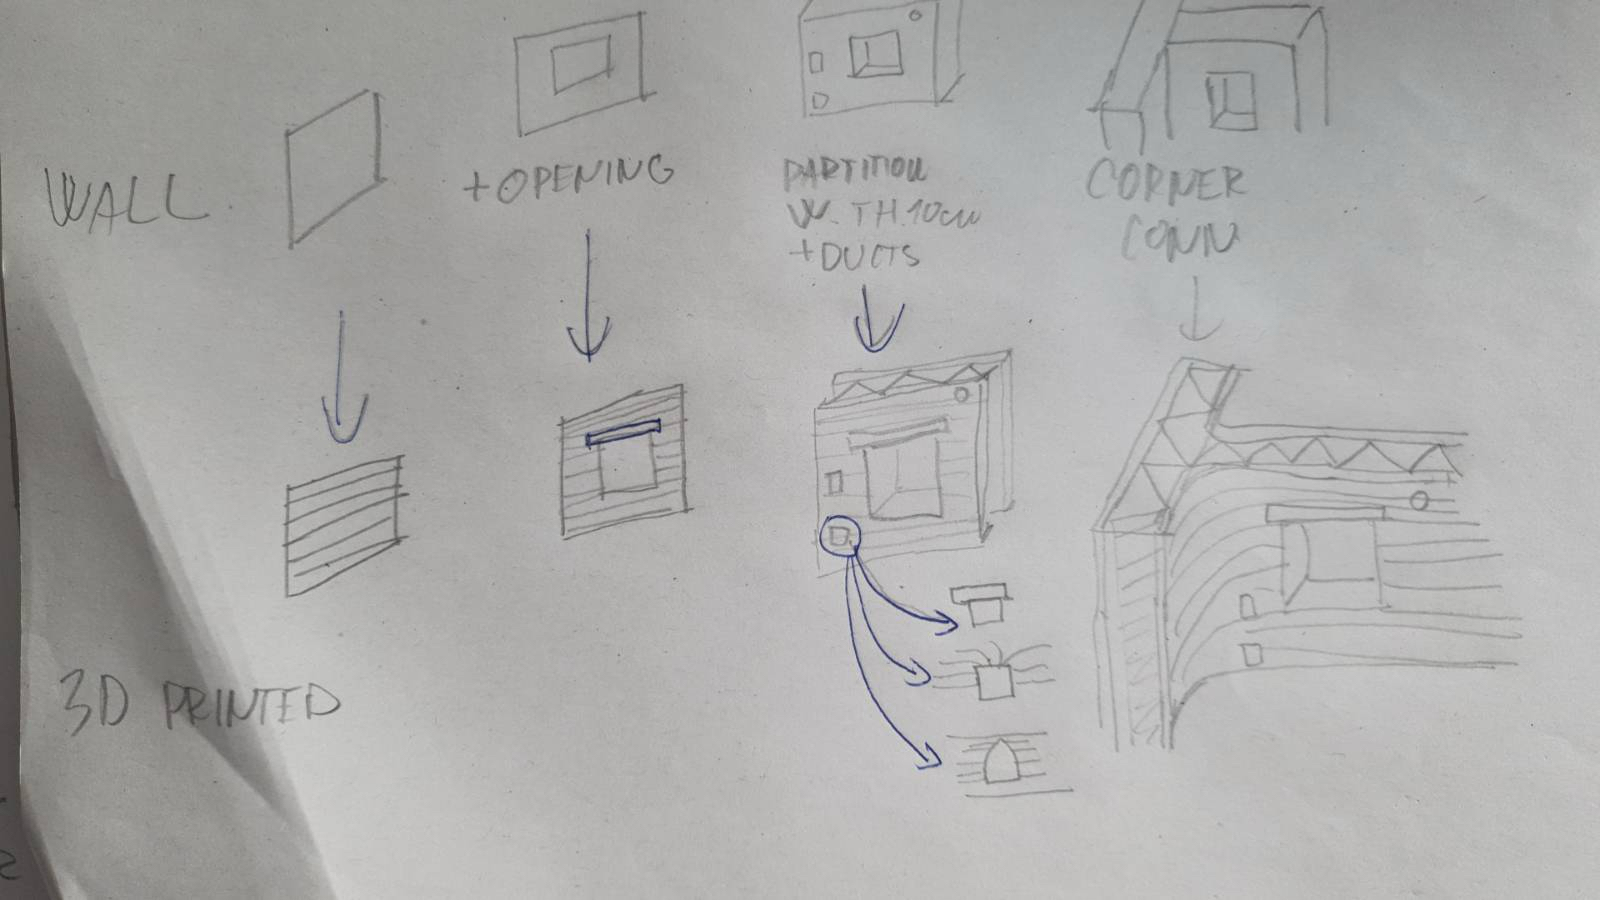 WALL
+OPENING
PARTITION
W. TH.10cm
+DUCTS
CORNER
CONN
3D PRINTED